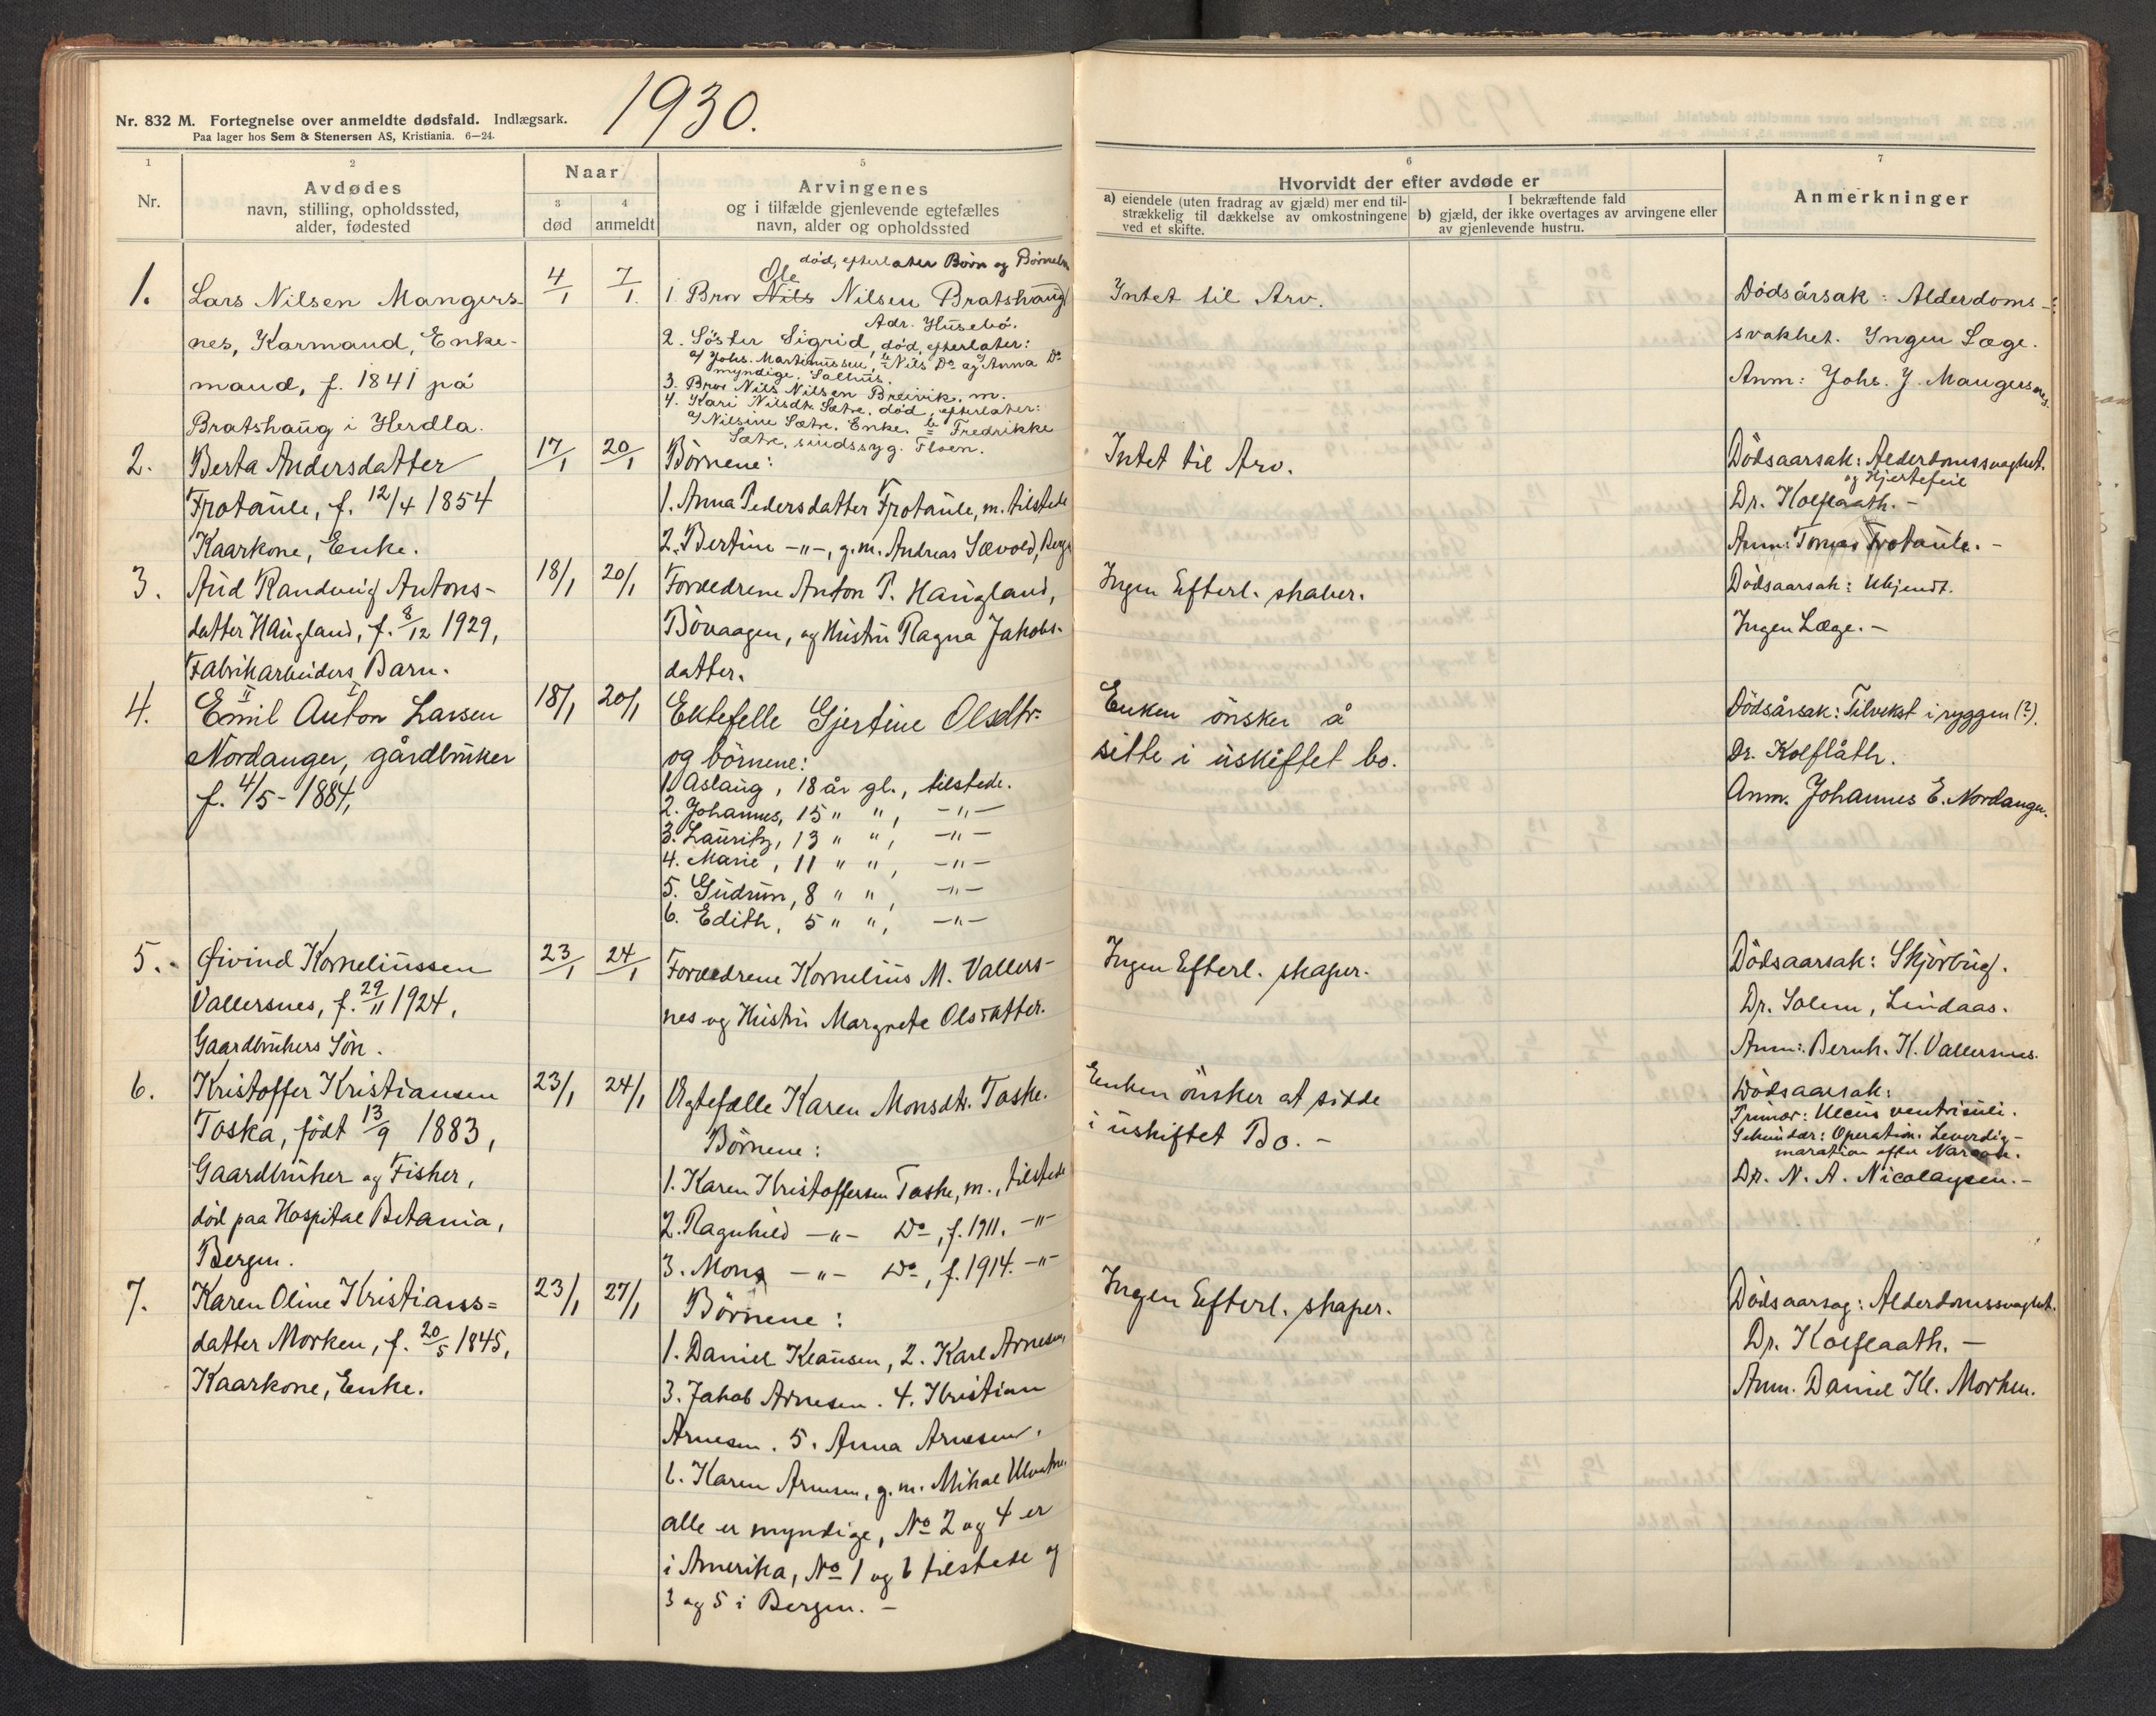 1930.
Nr. 832 M. Fortegnelse over anmeldte dødsfald. Indlægsark.
Paa lager hos Sem & Stenersen AS, Kristiania. 6—24.
1
Nr.
2
Avdødes
navn, stilling, opholdssted,
alder, fødested
Naar
3
død
4
anmeldt
5
Arvingenes
og i tilfælde gjenlevende egtefælles
navn, alder og opholdssted
6
Hvorvidt der efter avdøde er
a) eiendele (uten fradrag av gjæld) mer end til-
strækkelig til dækkelse av omkostningene
ved et skifte.
I bekræftende fald
b) gjæld, der ikke overtages av arvingene eller
av gjenlevende hustru.
7
Anmerkninger
1.
Lars Nilsen Mangers-
nes, Karmand, Enke-
mand, f. 1841 på
Bratshaug i Herdla.
4/1
7/1.
død, efterlater Børn og Børnebn
Ole
1 Bror Nils Nilsen Bratshaug
Adr. Husebö.
2. Söster Sigrid, död, efterlater:
a/ Johs. Martinussen, b/ Nils Do og Anna Do
myndige. Salhus.
3. Bror Nils Nilsen Breivik. m.
4. Kari Nilsdtr. Sætre, död, efterlater:
a/ Nilsine Sætre. Enke. b Fredrikke
Sætre, sindssyg. Floen.
Intet til Arv.
Dödsårsak: Alderdoms-
svakhet. Ingen Læge.
Anm: Johs. J. Mangersnes.
2.
Berta Andersdatter
Frotaule, f. 12/4 1854
Kaarkone, Enke.
17/1
20/1
Börnene:
1. Anna Pedersdatter Frotaule, m. tilstede
2. Bertine -"-, g.m. Andreas Sævold, Berg
Intet til Arv.
Dödsaarsak: Alderdomssvaghet.
og Hjertefeil
Dr. Kolflaath. -
Anm: Tomas Frotaule. -
3.
Aud Randveig Antons-
datter Haugland, f. 8/12 1929,
Fabrikarbeiders Barn.
18/1
20/1
Forældrene Anton P. Haugland,
Bövaagen, og Hustru Ragna Jakobs-
datter.
Ingen Efterl. skaber.
Dödsaarsak: Ukjendt.
Ingen Læge. -
4.
II I
Emil Anton Larsen
Nordanger, gårdbruker
f. 4/5 - 1884,
18/1
20/1
Ektefelle Gjertine Olsdtr.
og börnene:
1. Aslaug, 18 år gl., tilstede.
2. Johannes, 15 " ", -"-
3. Lauritz, 13 " ", -"-
4. Marie, 11 " ", -"-
5. Gudrun, 8 " ", -"-
6. Edith, 5 " ", -"-
Enken önsker å
sitte i uskiftet bo.
Dödsårsak: Tilvekst i ryggen (?).
Dr. Kolflåth.
Anm. Johannes E. Nordanger.
5.
Øivind Korneliussen
Vallersnes, f. 29/11 1924,
Gaardbrukers Sön.
23/1
24/1
Forældrene Kornelius M. Vallers-
nes og Hustru Margrete Olsdatter.
Ingen Efterl. skaper.
Dödsaarsak: Skjörbug.
Dr. Solem, Lindaas.
Anm: Bernh. K. Vallersnes.
6.
Kristoffer Kristiansen
Toska, født 13/9 1883,
Gaardbruker og Fisker,
død paa Hospital Betania,
Bergen.
23/1
24/1
Ægtefælle Karen Monsdtr. Toske.
Börnene:
1. Karen Kristoffersen Toske, m., tilstede
2. Ragnhild -"- Do, f. 1911. -"-
3. Mons -"- Do, f. 1914. -"-
Enken önsker at sidde
i uskiftet Bo. -
Dödsaarsak:
Primær: Ulcus ventriculi.
Sekundær: Operation. Leverdig-
maration efter Narcose.
Dr. N. A. Nicolaysen. -
7.
Karen Oline Kristians=
datter Morken, f. 20/5 1845,
Kaarkone, Enke.
23/1
27/1
Börnene:
1. Daniel Klausen, 2. Karl Arnesen,
3. Jakob Arnesen. 4. Kristian
Arnesen. 5. Anna Arnesen.
6. Karen Arnesen, g. m. Mikal
alle er myndige, No 2 og 4 er
i Amerika, No 1 og 6 tilstede og
3 og 5 i Bergen. -
Ingen Efterl. skaper.
Dödsaarsag: Alderdomssvaghet.
Dr. Kolflaath. -
Anm. Daniel Kl. Morken.